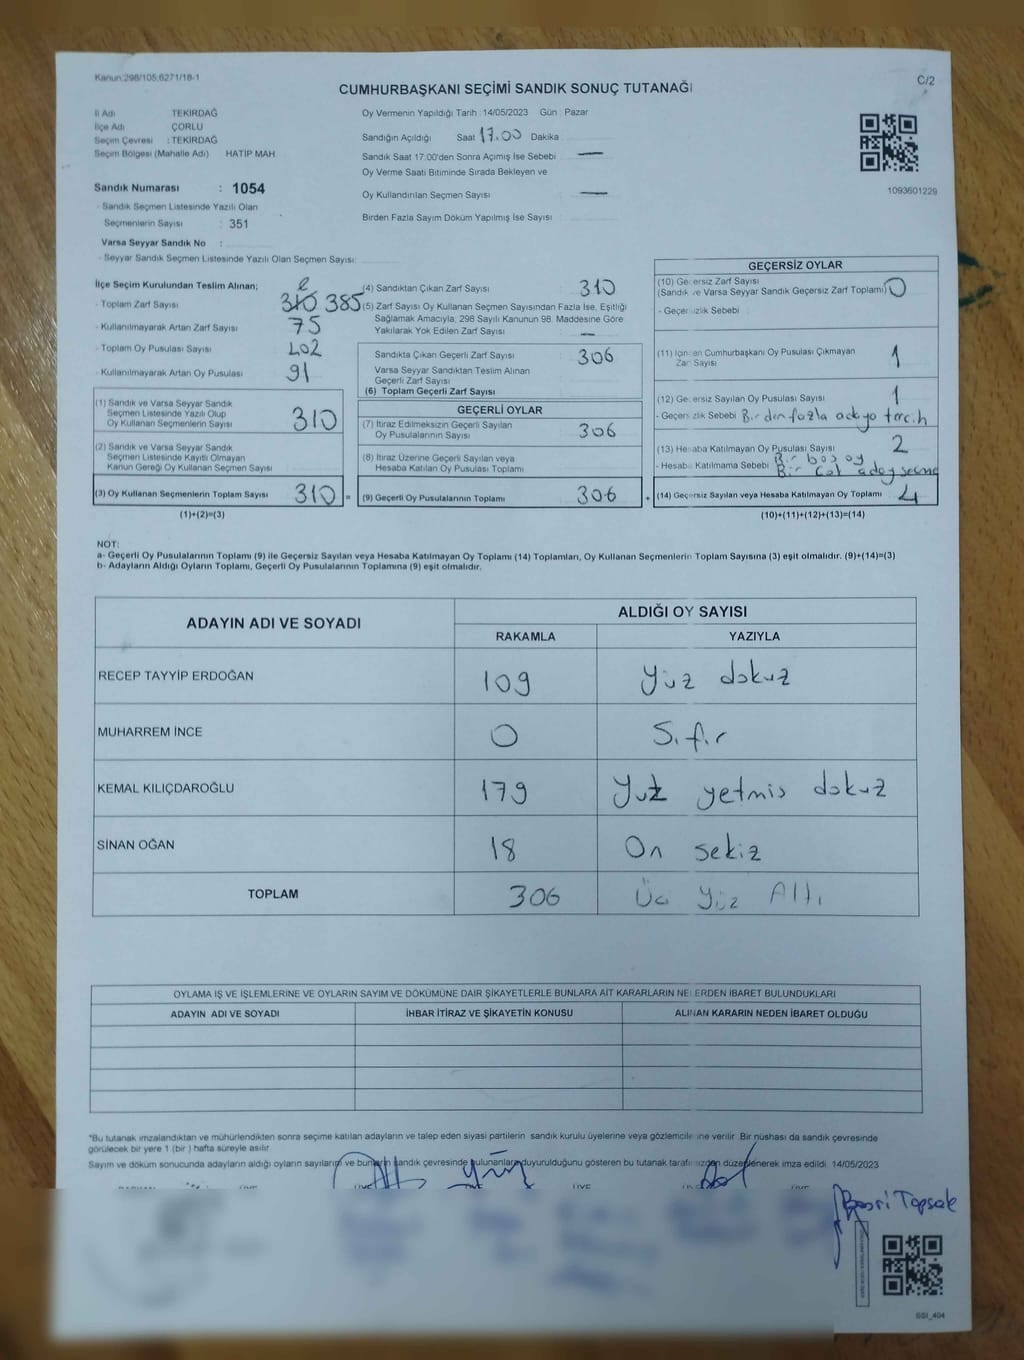 Kanun:298/105;6271/18-1
C/2
CUMHURBAŞKANI SEÇİMİ SANDIK SONUÇ TUTANAĞI
İl Adı TEKİRDAĞ
İlçe Adı ÇORLU
Seçim Çevresi : TEKİRDAĞ
Seçim Bölgesi (Mahalle Adı) HATIP MAH
Sandık Numarası : 1054
- Sandık Seçmen Listesinde Yazılı Olan
Seçmenlerin Sayısı : 351
Varsa Seyyar Sandık No :
- Seyyar Sandık Seçmen Listesinde Yazılı Olan Seçmen Sayısı:
Oy Vermenin Yapıldığı Tarih 14/05/2023 Gün Pazar
Sandığın Açıldığı Saat 17.00 Dakika
Sandık Saat 17:00'den Sonra Açımış İse Sebebi —
Oy Verme Saati Bitiminde Sırada Bekleyen ve
Oy Kullandırılan Seçmen Sayısı —
Birden Fazla Sayım Döküm Yapılmış İse Sayısı
1093601229
İlçe Seçim Kurulundan Teslim Alınan;
- Toplam Zarf Sayısı 310 385
- Kullanılmayarak Artan Zarf Sayısı 75
- Toplam Oy Pusulası Sayısı 402
- Kullanılmayarak Artan Oy Pusulası 91
(1) Sandık ve Varsa Seyyar Sandık
Seçmen Listesinde Yazılı Olup
Oy Kullanan Seçmenlerin Sayısı 310
(2) Sandık ve Varsa Seyyar Sandık
Seçmen Listesinde Kayıtlı Olmayan
Kanun Gereği Oy Kullanan Seçmen Sayısı
(3) Oy Kullanan Seçmenlerin Toplam Sayısı 310 =
(1)+(2)=(3)
(4) Sandıktan Çıkan Zarf Sayısı 310
(5) Zarf Sayısı Oy Kullanan Seçmen Sayısından Fazla İse, Eşitliği
Sağlamak Amacıyla, 298 Sayılı Kanunun 98. Maddesine Göre
Yakılarak Yok Edilen Zarf Sayısı —
Sandıkta Çıkan Geçerli Zarf Sayısı 306
Varsa Seyyar Sandıktan Teslim Alınan
Geçerli Zarf Sayısı
(6) Toplam Geçerli Zarf Sayısı
GEÇERLİ OYLAR
(7) İtiraz Edilmeksizin Geçerli Sayılan
Oy Pusulalarının Sayısı 306
(8) İtiraz Üzerine Geçerli Sayılan veya
Hesaba Katılan Oy Pusulası Toplamı
(9) Geçerli Oy Pusulalarının Toplamı 306 +
GEÇERSİZ OYLAR
(10) Geçersiz Zarf Sayısı
(Sandık ve Varsa Seyyar Sandık Geçersiz Zarf Toplamı) 0
- Geçersizlik Sebebi
(11) İçinden Cumhurbaşkanı Oy Pusulası Çıkmayan
Zarf Sayısı 1
(12) Geçersiz Sayılan Oy Pusulası Sayısı 1
- Geçersizlik Sebebi Birden fazla adaya tercih
(13) Hesaba Katılmayan Oy Pusulası Sayısı 2
- Hesaba Katılmama Sebebi Bir boş oy
Bir
(14) Geçersiz Sayılan veya Hesaba Katılmayan Oy Toplamı 4
(10)+(11)+(12)+(13)=(14)
NOT:
a- Geçerli Oy Pusulalarının Toplamı (9) ile Geçersiz Sayılan veya Hesaba Katılmayan Oy Toplamı (14) Toplamları, Oy Kullanan Seçmenlerin Toplam Sayısına (3) eşit olmalıdır. (9)+(14)=(3)
b- Adayların Aldığı Oyların Toplamı, Geçerli Oy Pusulalarının Toplamına (9) eşit olmalıdır.
ADAYIN ADI VE SOYADI ALDIĞI OY SAYISI
RAKAMLA YAZIYLA
RECEP TAYYİP ERDOĞAN 109 Yüz dokuz
MUHARREM İNCE 0 Sıfır
KEMAL KILIÇDAROĞLU 179 Yüz yetmis dokuz
SİNAN OĞAN 18 On sekiz
TOPLAM 306 Üç Yüz Altı
OYLAMA İŞ VE İŞLEMLERİNE VE OYLARIN SAYIM VE DÖKÜMÜNE DAİR ŞİKAYETLERLE BUNLARA AİT KARARLARIN NELERDEN İBARET BULUNDUKLARI
ADAYIN ADI VE SOYADI İHBAR İTİRAZ VE ŞİKAYETİN KONUSU ALINAN KARARIN NEDEN İBARET OLDUĞU
*Bu tutanak imzalandıktan ve mühürlendikten sonra seçime katılan adayların ve talep eden siyasi partilerin sandık kurulu üyelerine veya gözlemcilerine verilir. Bir nüshası da sandık çevresinde
görülecek bir yere 1 (bir ) hafta süreyle asılır
Sayım ve döküm sonucunda adayların aldığı oyların sayılarını ve bunların sandık çevresinde bulunanlara duyurulduğunu gösteren bu tutanak tarafımızdan düzenlenerek imza edildi 14/05/2023
Basri Topsak
SSI_404